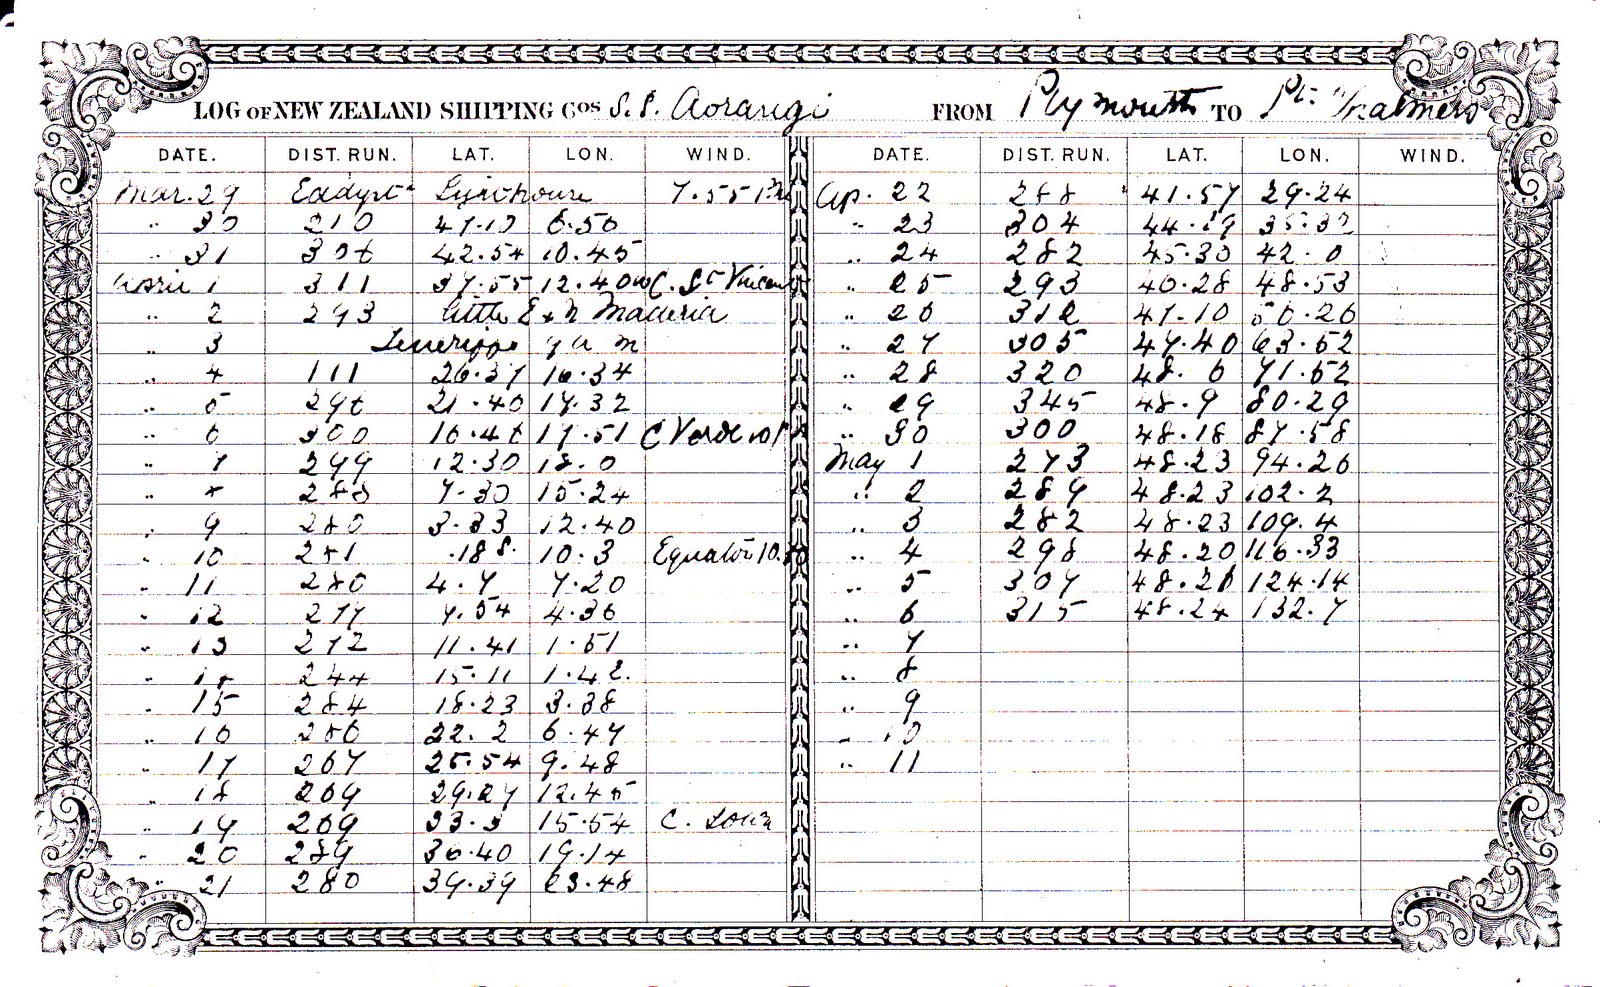 LOG OF NEW ZEALAND SHIPPING COS S.S. Aorangi FROM Plymouth TO Pt. Chalmers
DATE. DIST. RUN. LAT. LON. WIND.
Mar. 29 Eddyst Lighthouse 7.55 P.m
" 30 210 47.10 6.50
" 31 306 42.54 10.45
April 1 311 37.55 12.40 W C. St Vincent
" 2 293 little E & N Maderia
" 3 Teneriffe 9 a m
" 4 111 26.37 16.34
" 5 296 21.40 17.32
" 6 300 16.46 17.51 C Verde
" 7 299 12.30 18.0
" 8 288 7.30 15.24
" 9 280 3.33 12.40
" 10 281 .18 S. 10.3 Equator 10.
" 11 280 4.7 7.20
" 12 277 7.54 4.36
" 13 272 11.41 1.51
" 14 244 15.11 1.42.
" 15 284 18.23 3.38
" 16 280 22.2 6.47
" 17 267 25.54 9.48
" 18 269 29.27 12.45
" 19 269 33.3 15.54 C.
" 20 289 36.40 19.14
" 21 280 39.39 23.48
DATE. DIST. RUN. LAT. LON. WIND.
Ap. 22 288 41.57 29.24
" 23 304 44.19 35.32
" 24 282 45.30 42.0
" 25 293 46.28 48.53
" 26 312 47.10 56.26
" 27 305 47.40 63.52
" 28 320 48.6 71.52
" 29 345 48.9 80.29
" 30 300 48.18 87.58
May 1 273 48.23 94.26
" 2 289 48.23 102.2
" 3 282 48.23 109.4
" 4 298 48.20 116.33
" 5 307 48.21 124.14
" 6 315 48.24 132.7
" 7
" 8
" 9
" 10
" 11